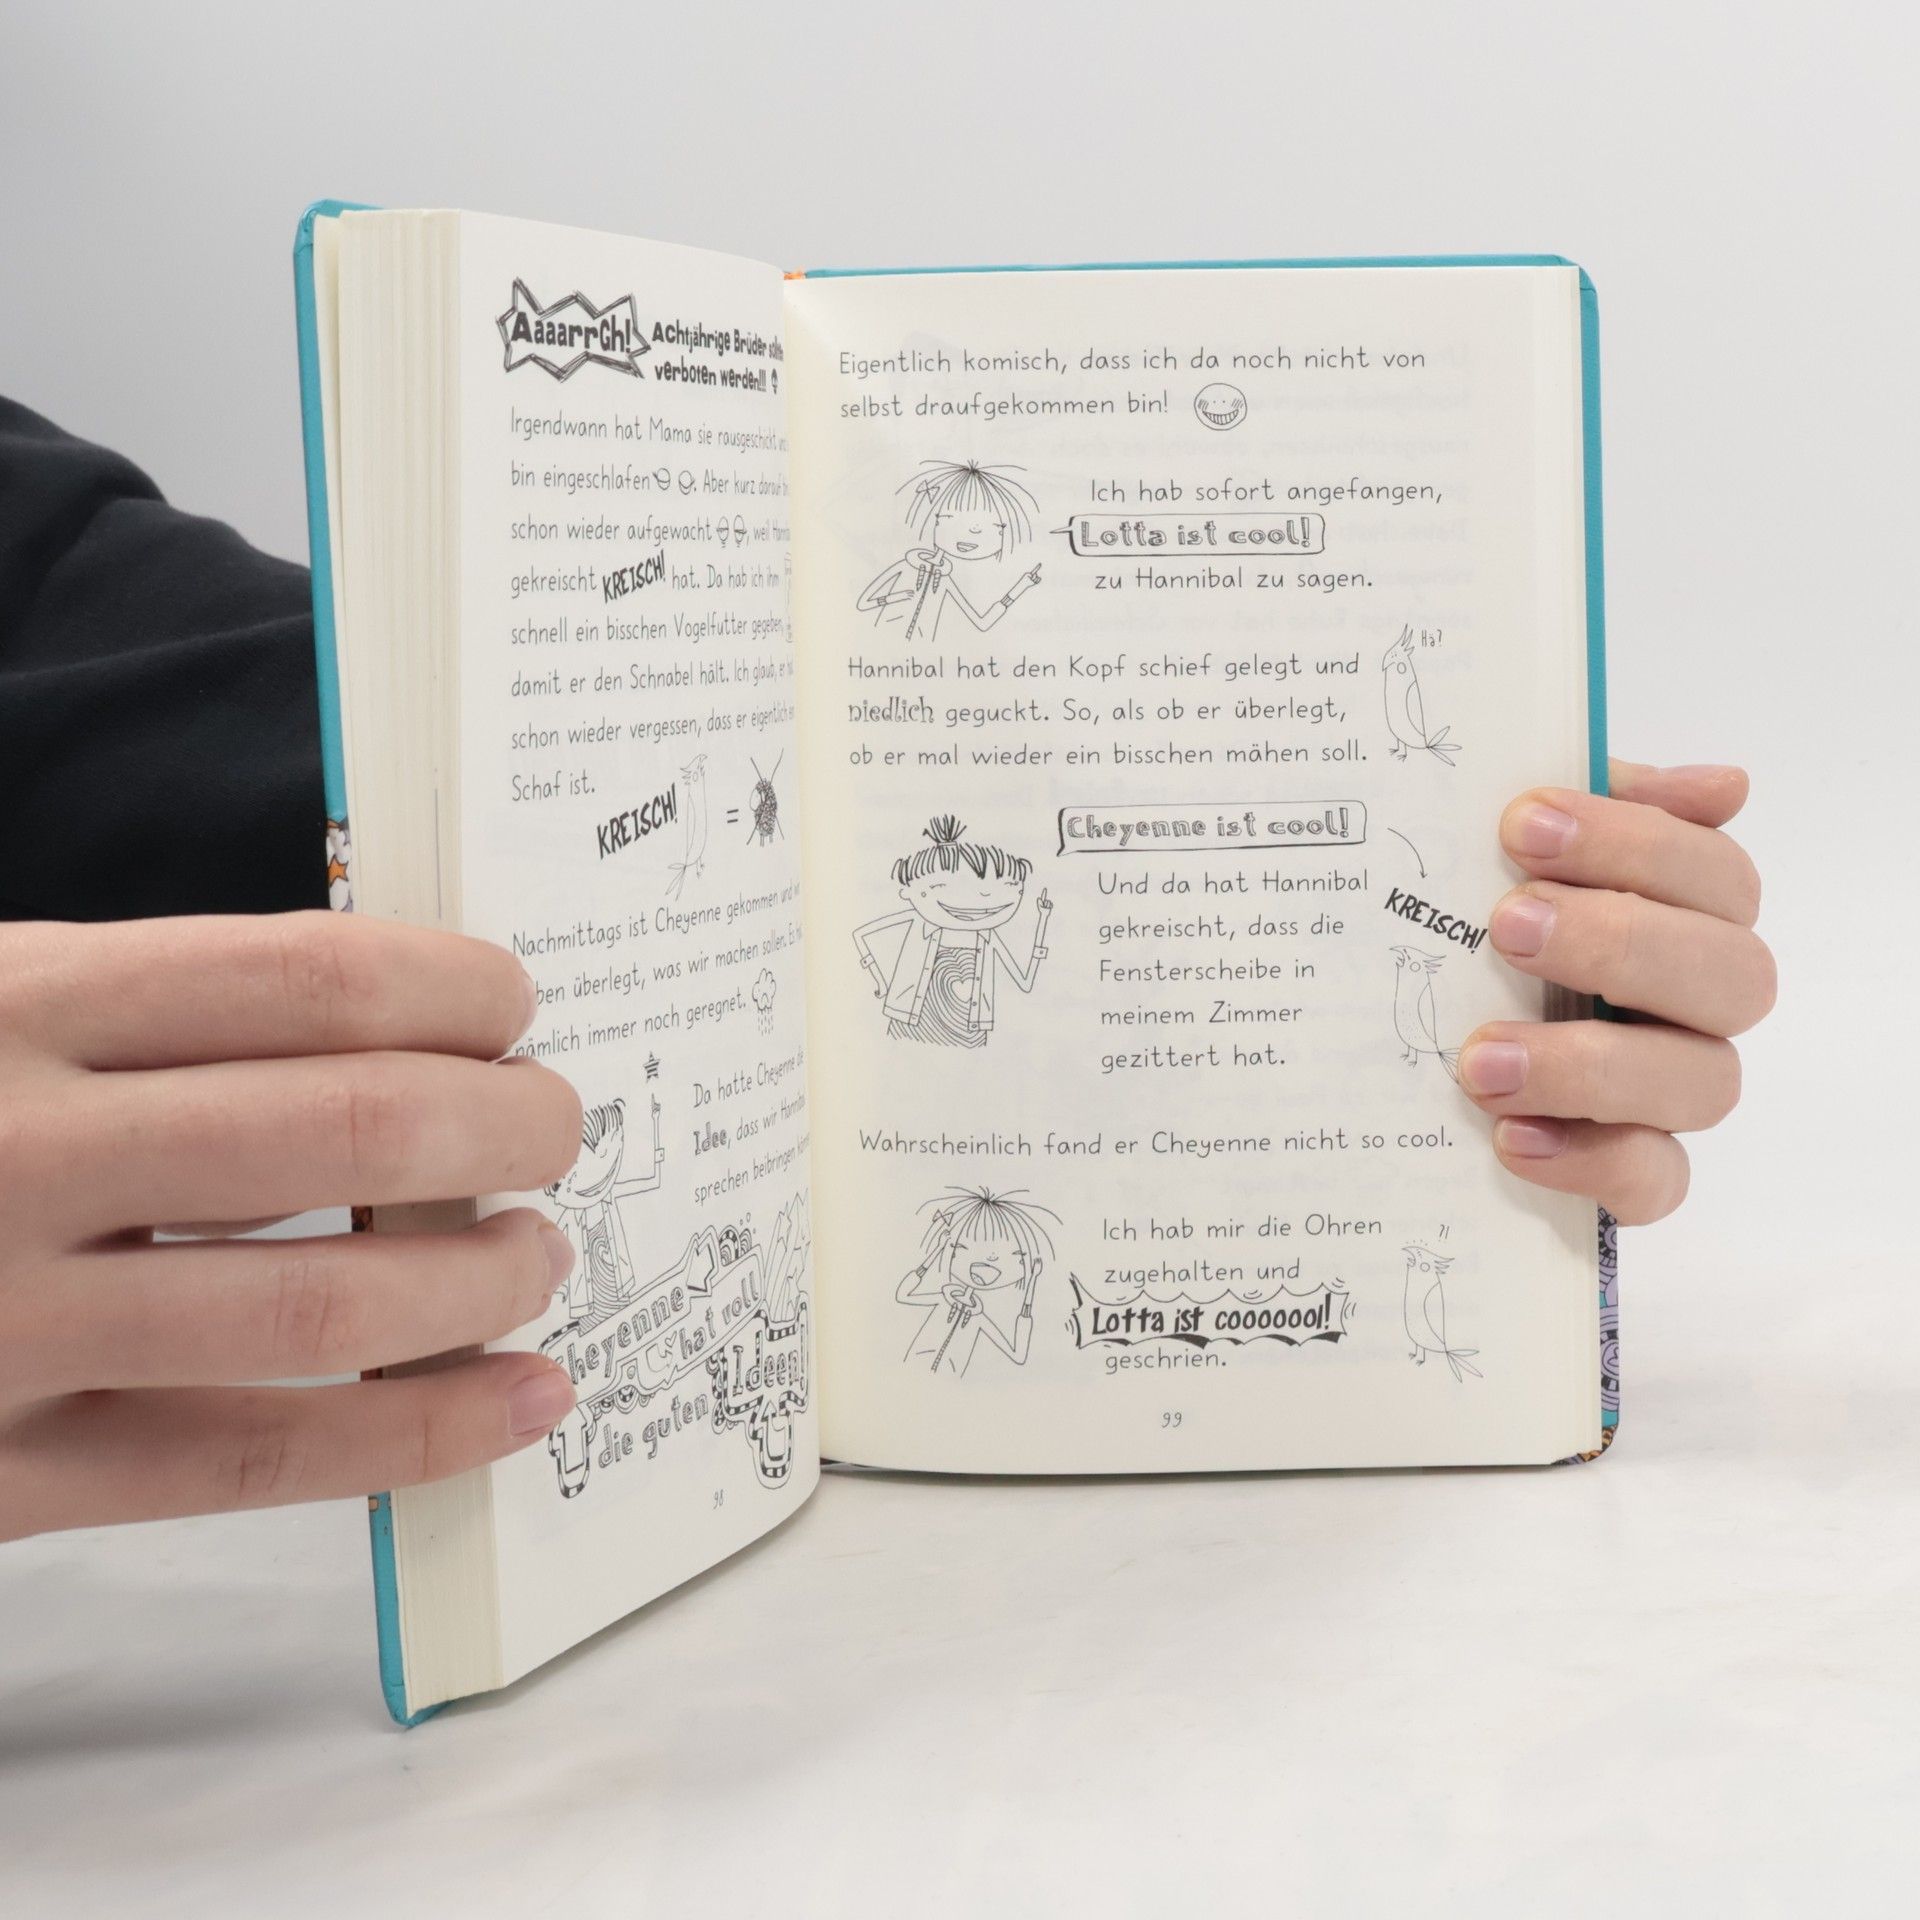 AaaarrGh! Achtjährige Brüder
verboten werden!!!
Irgendwann hat Mama sie rausgeschickt
bin eingeschlafen. Aber kurz darauf
schon wieder aufgewacht, weil
gekreischt KREISCH! hat. Da hab ich ihm
schnell ein bisschen Vogelfutter gegeben,
damit er den Schnabel hält. Ich glaub, er
schon wieder vergessen, dass er eigentlich
Schaf ist.
KREISCH! =
Nachmittags ist Cheyenne gekommen und
überlegt, was wir machen sollen. Es
nämlich immer noch geregnet.
Da hatte Cheyenne die
Idee, dass wir
sprechen beibringen
Cheyenne
hat voll
die guten Ideen!
98
Eigentlich komisch, dass ich da noch nicht von
selbst draufgekommen bin!
Ich hab sofort angefangen,
Lotta ist cool!
zu Hannibal zu sagen.
Hä?
Hannibal hat den Kopf schief gelegt und
niedlich geguckt. So, als ob er überlegt,
ob er mal wieder ein bisschen mähen soll.
Cheyenne ist cool!
Und da hat Hannibal
KREISCH!
gekreischt, dass die
Fensterscheibe in
meinem Zimmer
gezittert hat.
Wahrscheinlich fand er Cheyenne nicht so cool.
Ich hab mir die Ohren
?!
zugehalten und
Lotta ist cooooool!
geschrien.
99